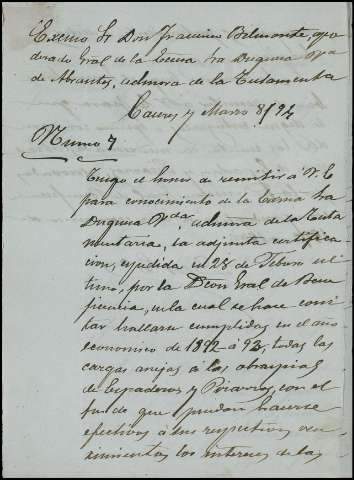 Excmo Sr Don Francisco Belmonte, apo
derado Gral de la Excma Sra Duquesa Vda
de Abrantes, admora de la Testamentia
Caceres y Marzo 8/94
Numo 7
Tengo el honor de remitir á V. E
para conocimiento de la Excma Sra
Duquesa Vda, admora de la Testa
mentaria, la adjunta certifica-
cion, expedida en 28 de Febrero ul
timo, por la Dcon Gral de Bene
ficencia, en la cual se hace cons
tar hallarse cumplidas en el año
economico de 1892 á 93, todas las
cargas anejas á las obras pias
de Espaderos y Pizarros, con el
fin de que puedan hacerse
efectivos á sus respectivos ven
cimientos los intereses de las